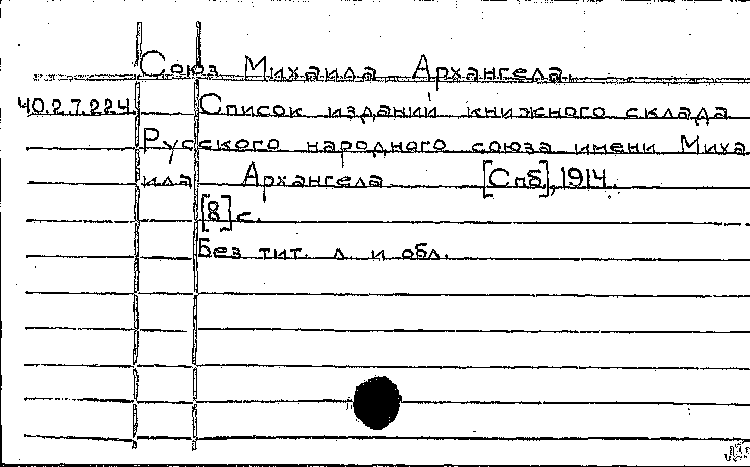 Союз Михаила Архангела.
40.2.7.224. Список изданий книжного склада
Русского народного союза имени Миха
ила Архангела [Спб], 1914.
[8] с.
Без тит. л. и обл.